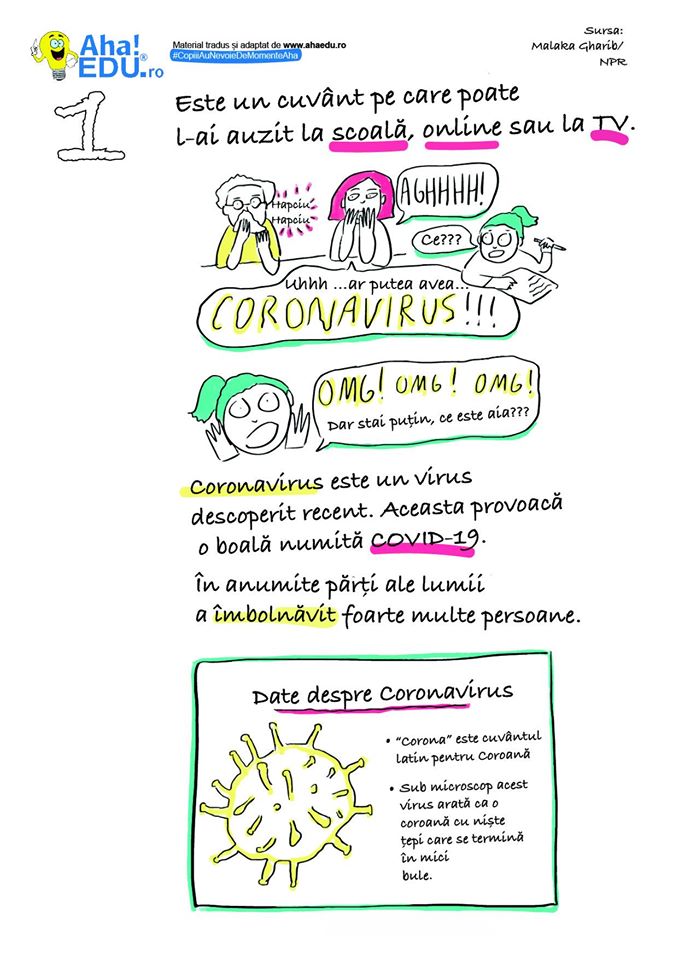 Aha!
EDU.ro
Material tradus și adaptat de www.ahaedu.ro
#CopiiiAuNevoieDeMomenteAha
Sursa:
Malaka Gharib/
NPR
1
Este un cuvânt pe care poate
l-ai auzit la scoală, online sau la TV.
Hapciu
Hapciu
AGHHHH!
Ce???
Uhhh ...ar putea avea...
CORONAVIRUS!!!
OMG! OMG! OMG!
Dar stai puțin, ce este aia???
Coronavirus este un virus
descoperit recent. Aceasta provoacă
o boală numită COVID-19.
În anumite părți ale lumii
a îmbolnăvit foarte multe persoane.
Date despre Coronavirus
• "Corona" este cuvântul
latin pentru Coroană
• Sub microscop acest
virus arată ca o
coroană cu niște
țepi care se termină
în mici
bule.